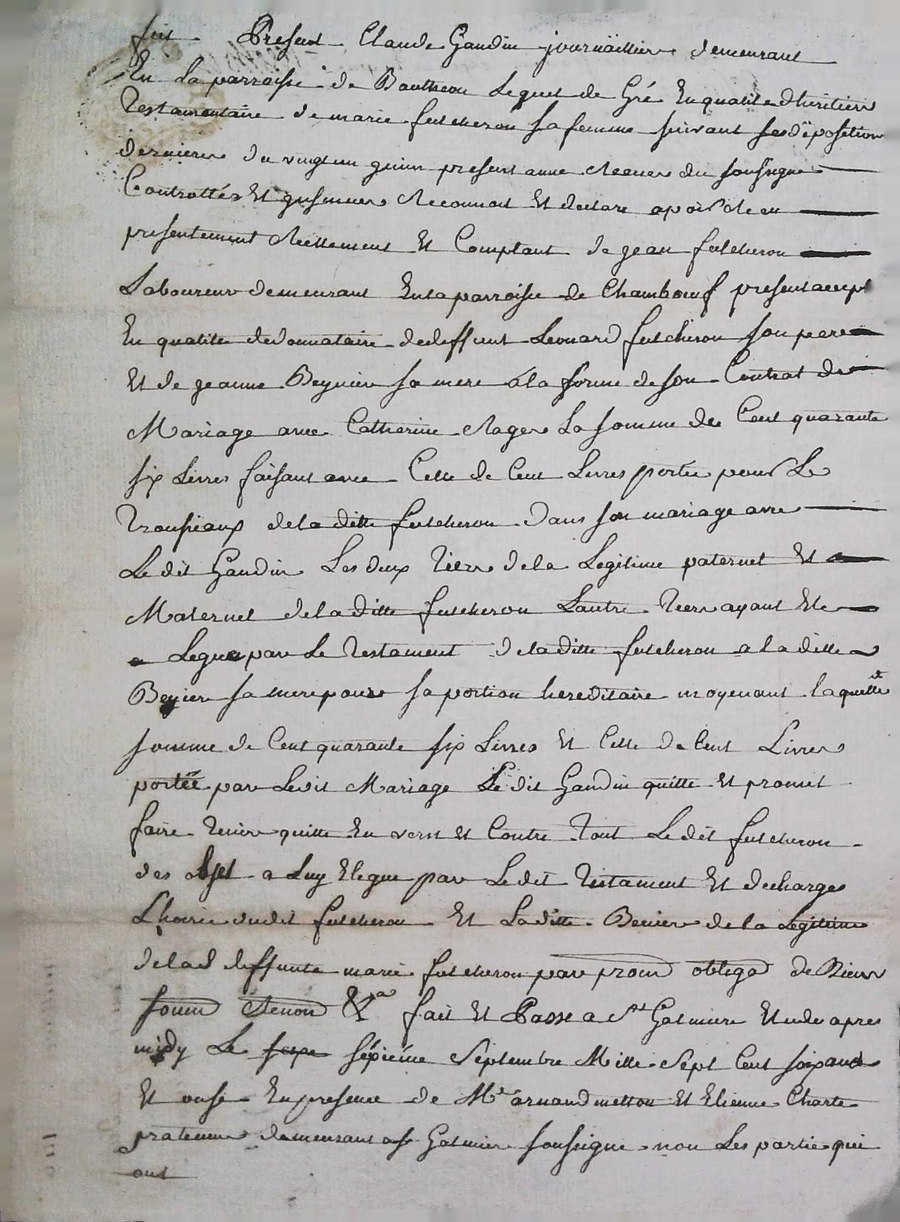 fut Present Claude Gaudin journaillier demeurant
En la parroisse de Boutheon Lequel de Gré En qualite dheritier
Testamentaire de marie futcheron sa femme suivant ses déposition
derniere du vingt un present anné Receu du soussigne
Controttés Et Reconnoit Et declare apvoir Receu
presentement Reellement Et Comptant de jean futcheron
Laboureur demeurant En la parroisse de Chambœuf present accept
En qualite de donnataire de deffunt Leonard futcheron son pere
Et de jeanne Beynier sa mere a la forme de son Contrat de
Mariage avec Catherine Rager La somme de Cent quarante
six Livres faisant avec Celle de Cent Livres portée pour Le
Trousseaux de la ditte futcheron Dans son mariage avec
Le dit Gaudin Les deux Tiers de la Legitime paternel Et
Maternel de la ditte futcheron Lautre Tiers ayant Ete
Legué par Le Testament de la ditte futcheron a la ditte
Beynier sa mere pour sa portion hereditaire moyenant laquelle
somme de Cent quarante six Livres Et Celle de Cent Livres
portée par Ledit Mariage Le dit Gaudin quitte Et promet
faire Tenir quitte En vers Et Contre Tout Le dit futcheron
des a Luy Elegue par Le dit Testament Et decharge
Lhoirie dudit futcheron Et La ditte Benier de la Legitime
de lad deffunte marie futcheron par prom obligaô de Biens
soum Renon &a fait Et Passe a St Galmier Etude apres
midy Le septiéme Septembre Mille Sept Cent soixante
Et onse En presence de Mr arnaud metton Et Etienne Charte
praticien demeurant a st Galmier soussigne non Les partie qui
ont